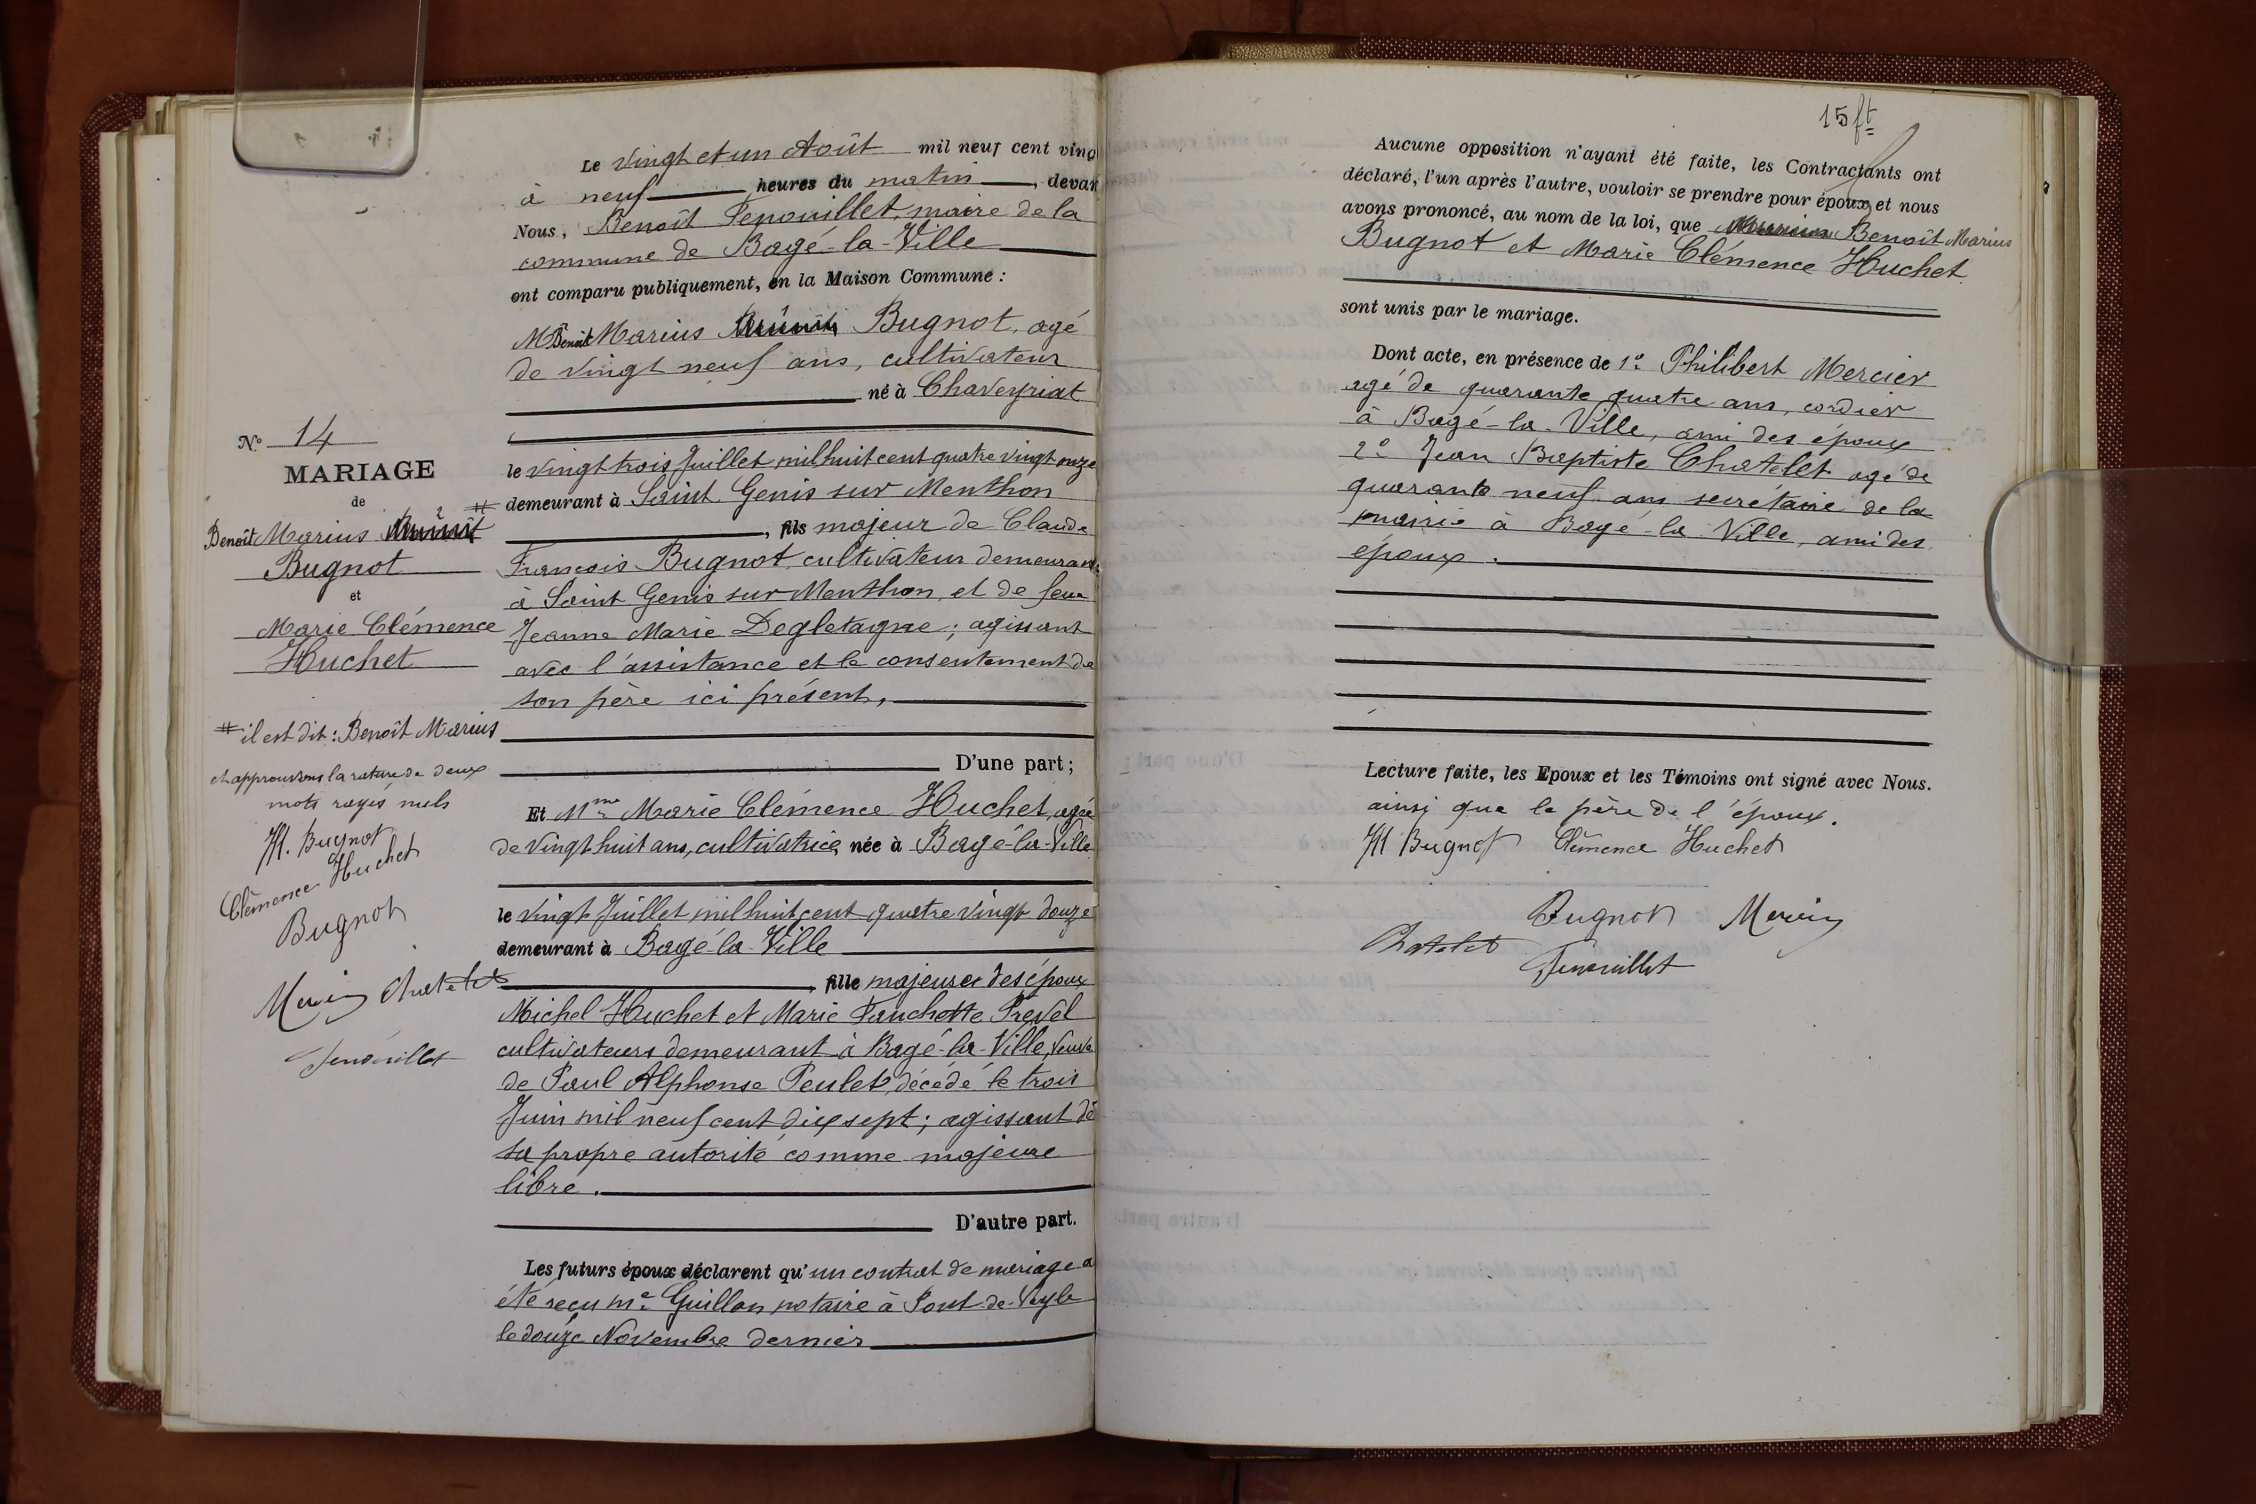 N° 14
MARIAGE
de
Benoît Marius
Bugnot
et
Marie Clémence
Huchet
# il est dit : Benoît Marius
et approuvons la rature de deux
mots rayés nuls
M. Bugnot
Clémence Huchet
Bugnot
Mercier Chatelet
Fenouillet
Le vingt et un Août mil neuf cent ving
à neuf heures du matin, devan
Nous, Benoît Fenouillet, maire de la
commune de Bagé-la-Ville
ont comparu publiquement, en la Maison Commune :
M Benoît Marius Bugnot, agé
de vingt neuf ans, cultivateur
né à Chaveyriat
le vingt trois Juillet mil huit cent quatre vingt onze
demeurant à Saint Genis sur Menthon
, fils majeur de Claude
François Bugnot, cultivateur demeurant
à Saint Genis sur Menthon, et de feue
Jeanne Marie Degletagne ; agissant
avec l'assistance et le consentement de
son père ici présent,
D'une part ;
Et Mme Marie Clémence Huchet, agée
de vingt huit ans, cultivatrice, née à Bagé-la-Ville
le vingt Juillet mil huit cent quatre vingt douze
demeurant à Bagé-la-Ville
, fille majeure des époux
Michel Huchet et Marie Fanchette Prevel
cultivateurs demeurant à Bagé-la-Ville, veuve
de Paul Alphonse Peulet, décédé le trois
Juin mil neuf cent dix sept ; agissant de
sa propre autorité comme majeure
libre.
D'autre part.
Les futurs époux déclarent qu'un contrat de mariage a
été reçu Me Guillon notaire à Pont-de-Veyle
le douze Novembre dernier
15 ft
Aucune opposition n'ayant été faite, les Contractants ont
déclaré, l'un après l'autre, vouloir se prendre pour époux et nous
avons prononcé, au nom de la loi, que Benoît Marius
Bugnot et Marie Clémence Huchet
sont unis par le mariage.
Dont acte, en présence de 1° Philibert Mercier
agé de quarante quatre ans, cordier
à Bagé-la-Ville, ami des époux
2° Jean Baptiste Chatelet agé de
quarante neuf ans secrétaire de la
mairie à Bagé-la-Ville, ami des
époux.
Lecture faite, les Epoux et les Témoins ont signé avec Nous.
ainsi que le père de l'époux.
M Bugnot Clémence Huchet
Bugnot Mercier
Chatelet
Fenouillet